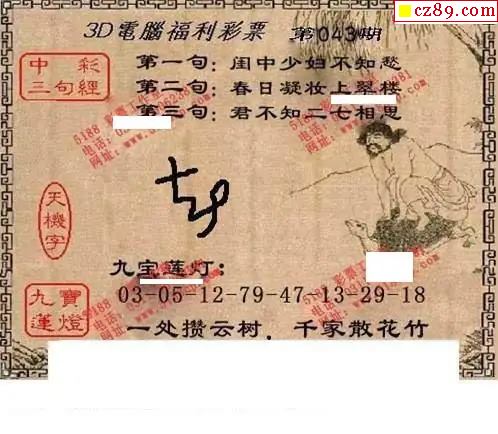 cz89.com
3D電腦福利彩票 第043期
中彩
三句經
第一句：闺中少妇不知愁
第二句：春日凝妆上翠楼
第三句：君不知二七相思
天機字
九宝莲灯：
03-05-12-79-47-13-29-18
九寶
蓮燈
一处攒云树，千家散花竹